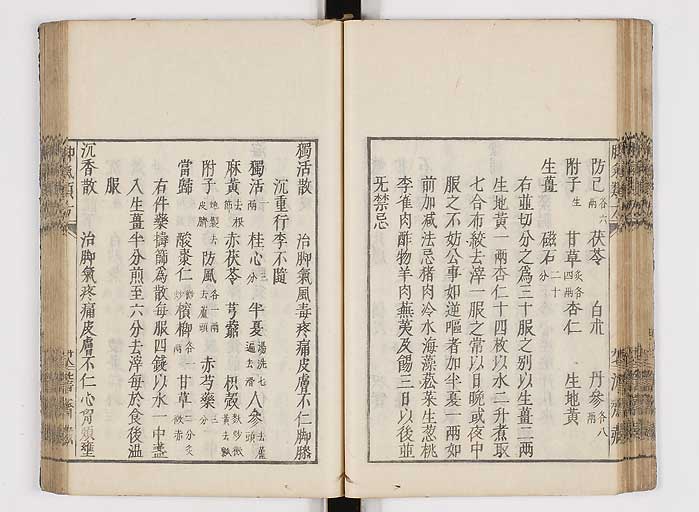 防己各六兩 茯苓 白朮 丹參各八兩
附子生 甘草炙各四兩 杏仁 生地黃
生薑 磁石二十分
右並切分之為三十服之別以生薑二兩
生地黃一兩杏仁十四枚以水二升煮取
七合布絞去滓一服之常以日晚或夜中
服之不妨公事如逆嘔者加半夏一兩如
前加減法忌猪肉冷水海藻菘菜生葱桃
李雀肉酢物羊肉蕪荑及餳三日以後並
无禁忌
獨活散 治脚氣風毒疼痛皮膚不仁脚膝
沉重行李不隨
獨活一兩 桂心三分 半夏湯洗七遍去滑 人參去蘆頭
麻黃去根節 赤茯苓 芎藭 枳殼麩炒微黃去瓤
附子炮製去皮臍 防風各一兩去蘆頭 赤芍藥三分
當歸 酸棗仁微炒 檳榔各一兩 甘草二分炙微赤
右件藥擣篩為散每服四錢以水一中盞
入生薑半分煎至六分去滓每於食後溫
服
沉香散 治脚氣疼痛皮膚不仁心胷煩壅